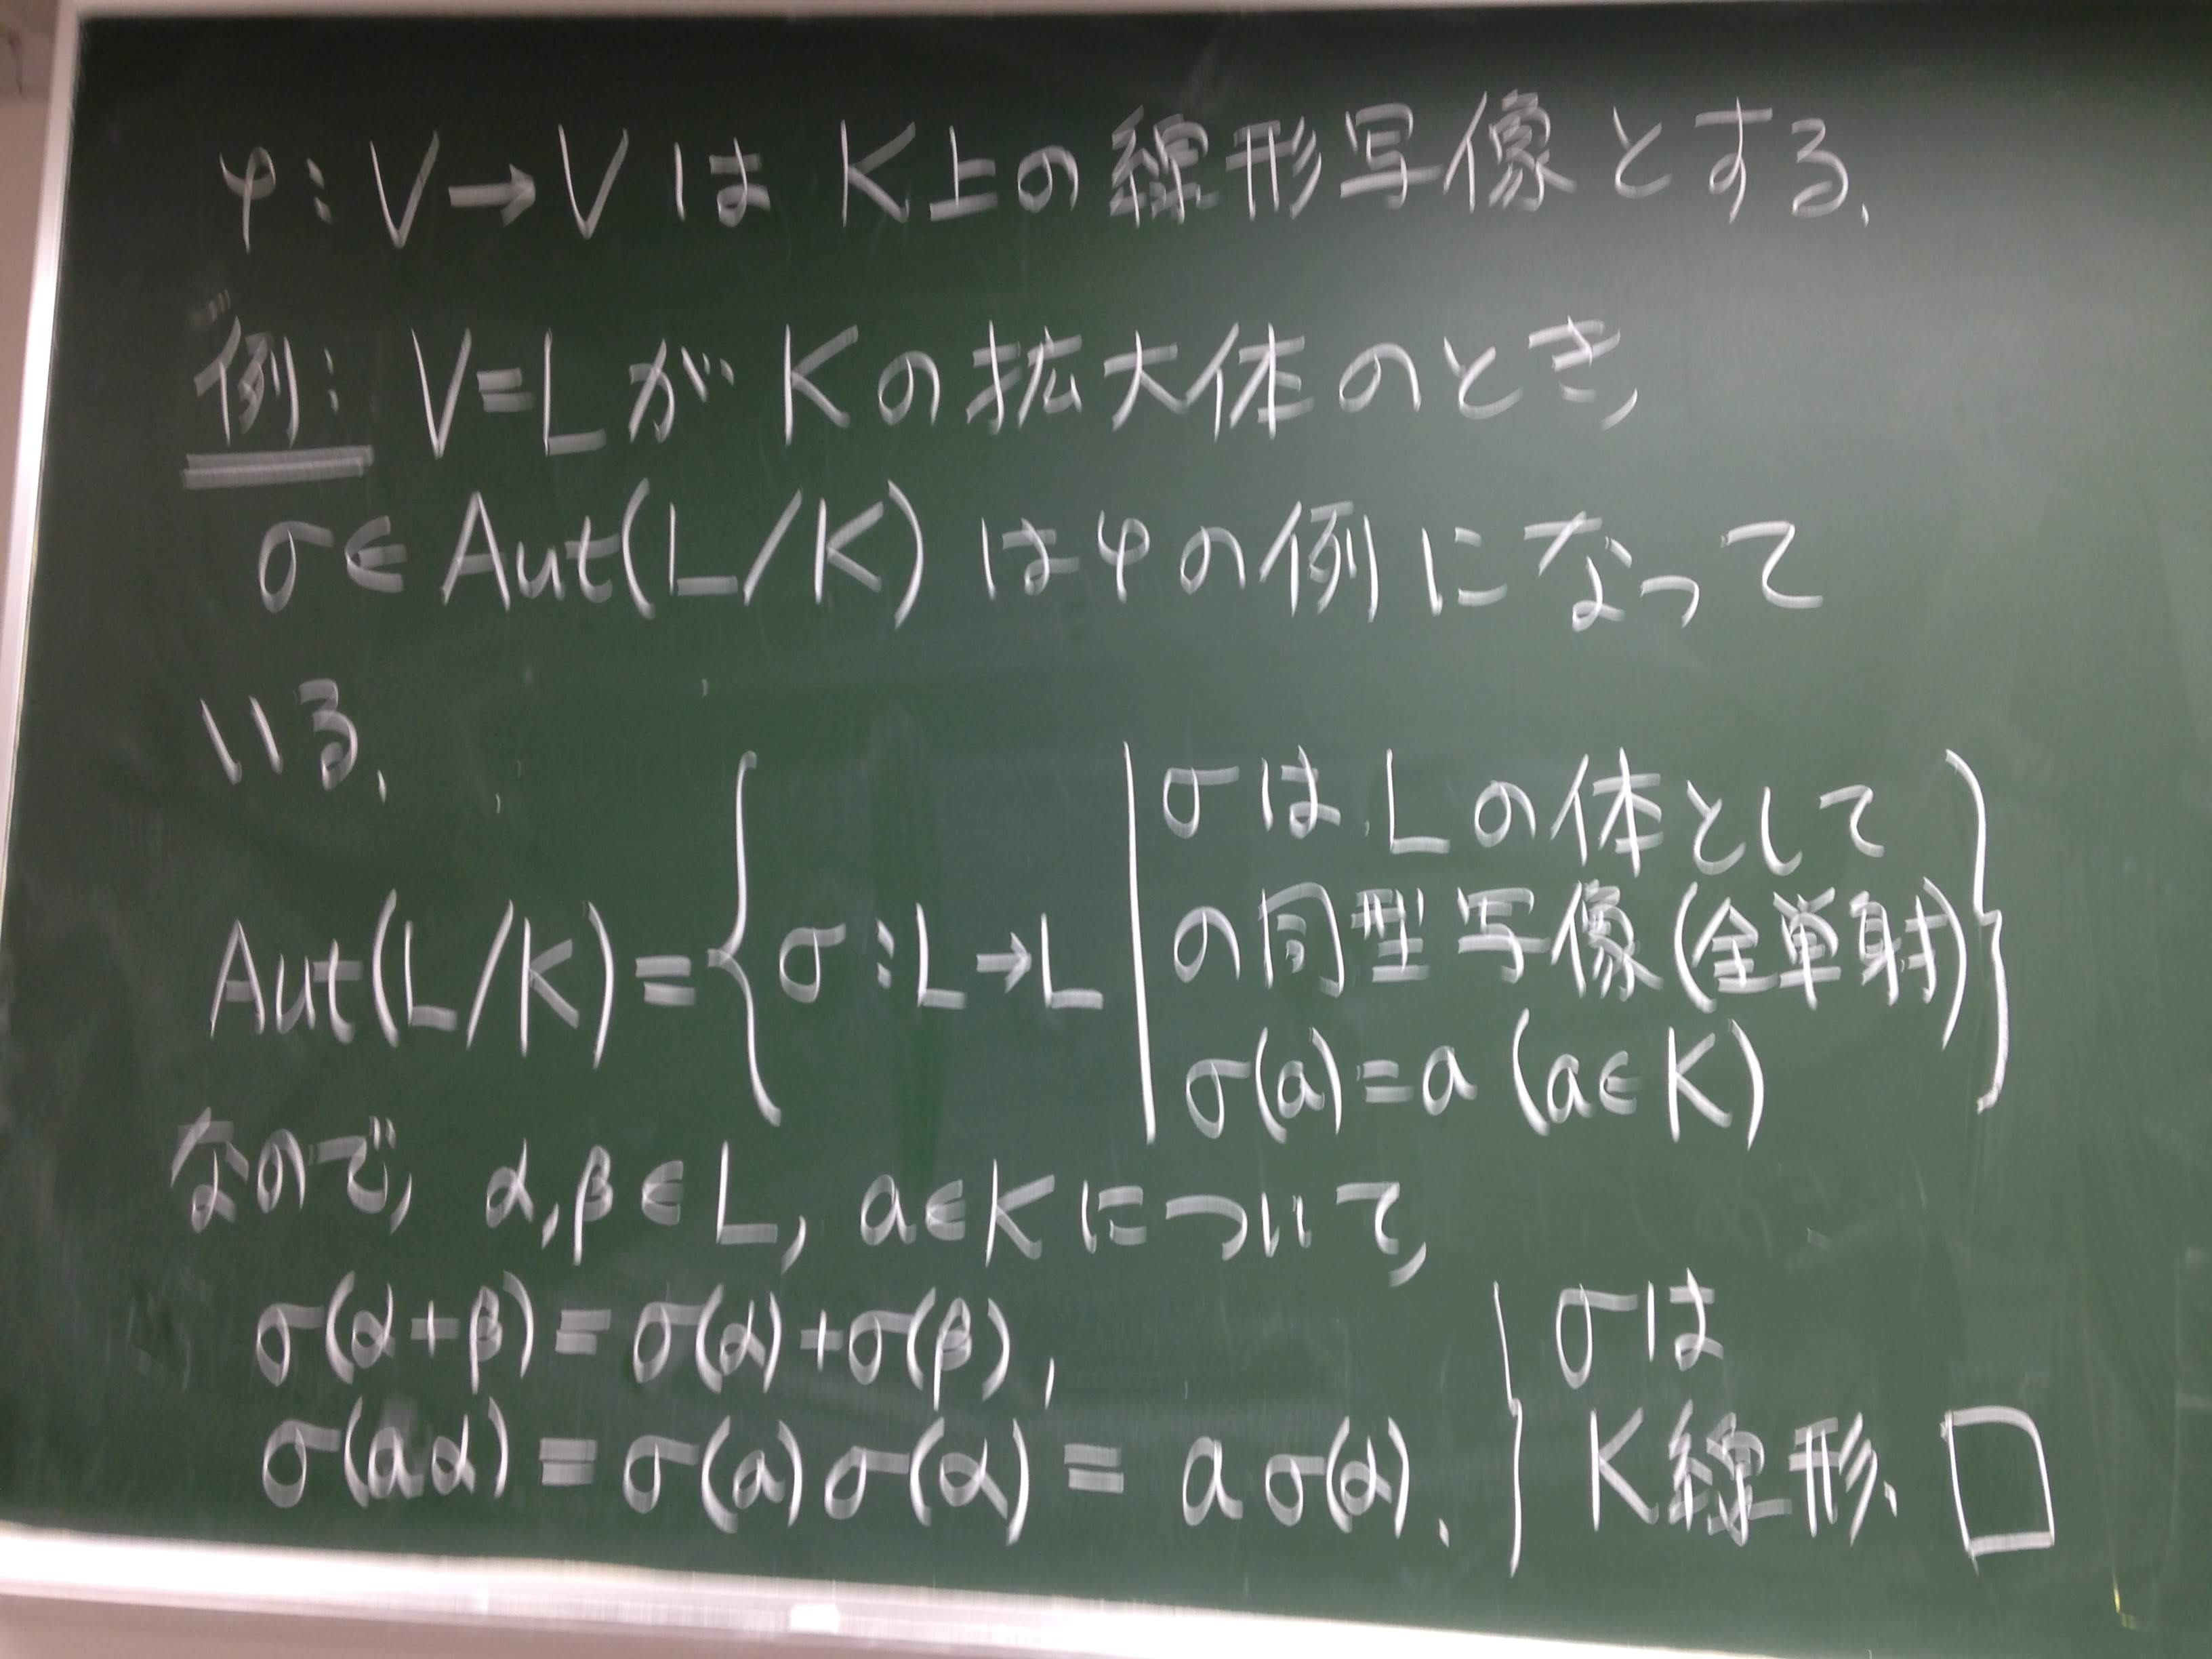 φ: V→V は K上の線形写像とする.
例: V=L が K の拡大体のとき,
σ∈Aut(L/K) はφの例になって
いる.
Aut(L/K) = { σ: L→L | σは L の体として
の同型写像(全単射)
σ(a)=a (a∈K) }
なので, α,β∈L, a∈K について,
σ(α+β) = σ(α)+σ(β),
σ(aα) = σ(a)σ(α) = aσ(α).
} σは
K線形. □